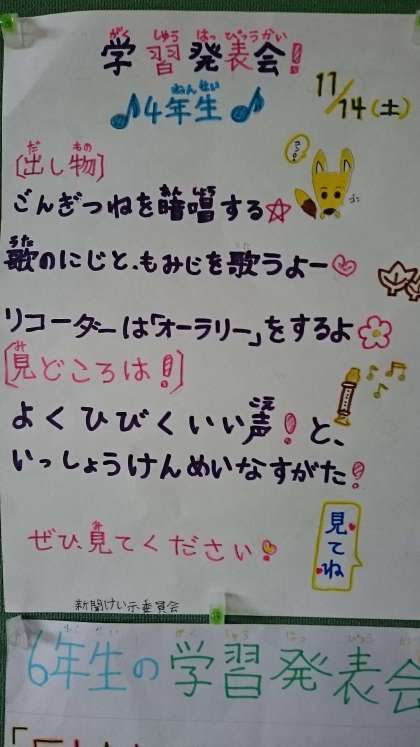 がくしゅうはっぴょうかい
学習発表会!
ねんせい
♪4年生♪
11/14(土)
だもの
[出し物]
コンコン
ごんぎつねを暗唱する☆
うた
歌のにじと、もみじを歌うよー♡
リコーダーは「オーラリー」をするよ
み
[見どころは!]
こえ
よくひびくいい声!と、
いっしょうけんめいなすがた!
み
ぜひ、見てください!
見てね
新聞けい示委員会
6年生の学習発表会